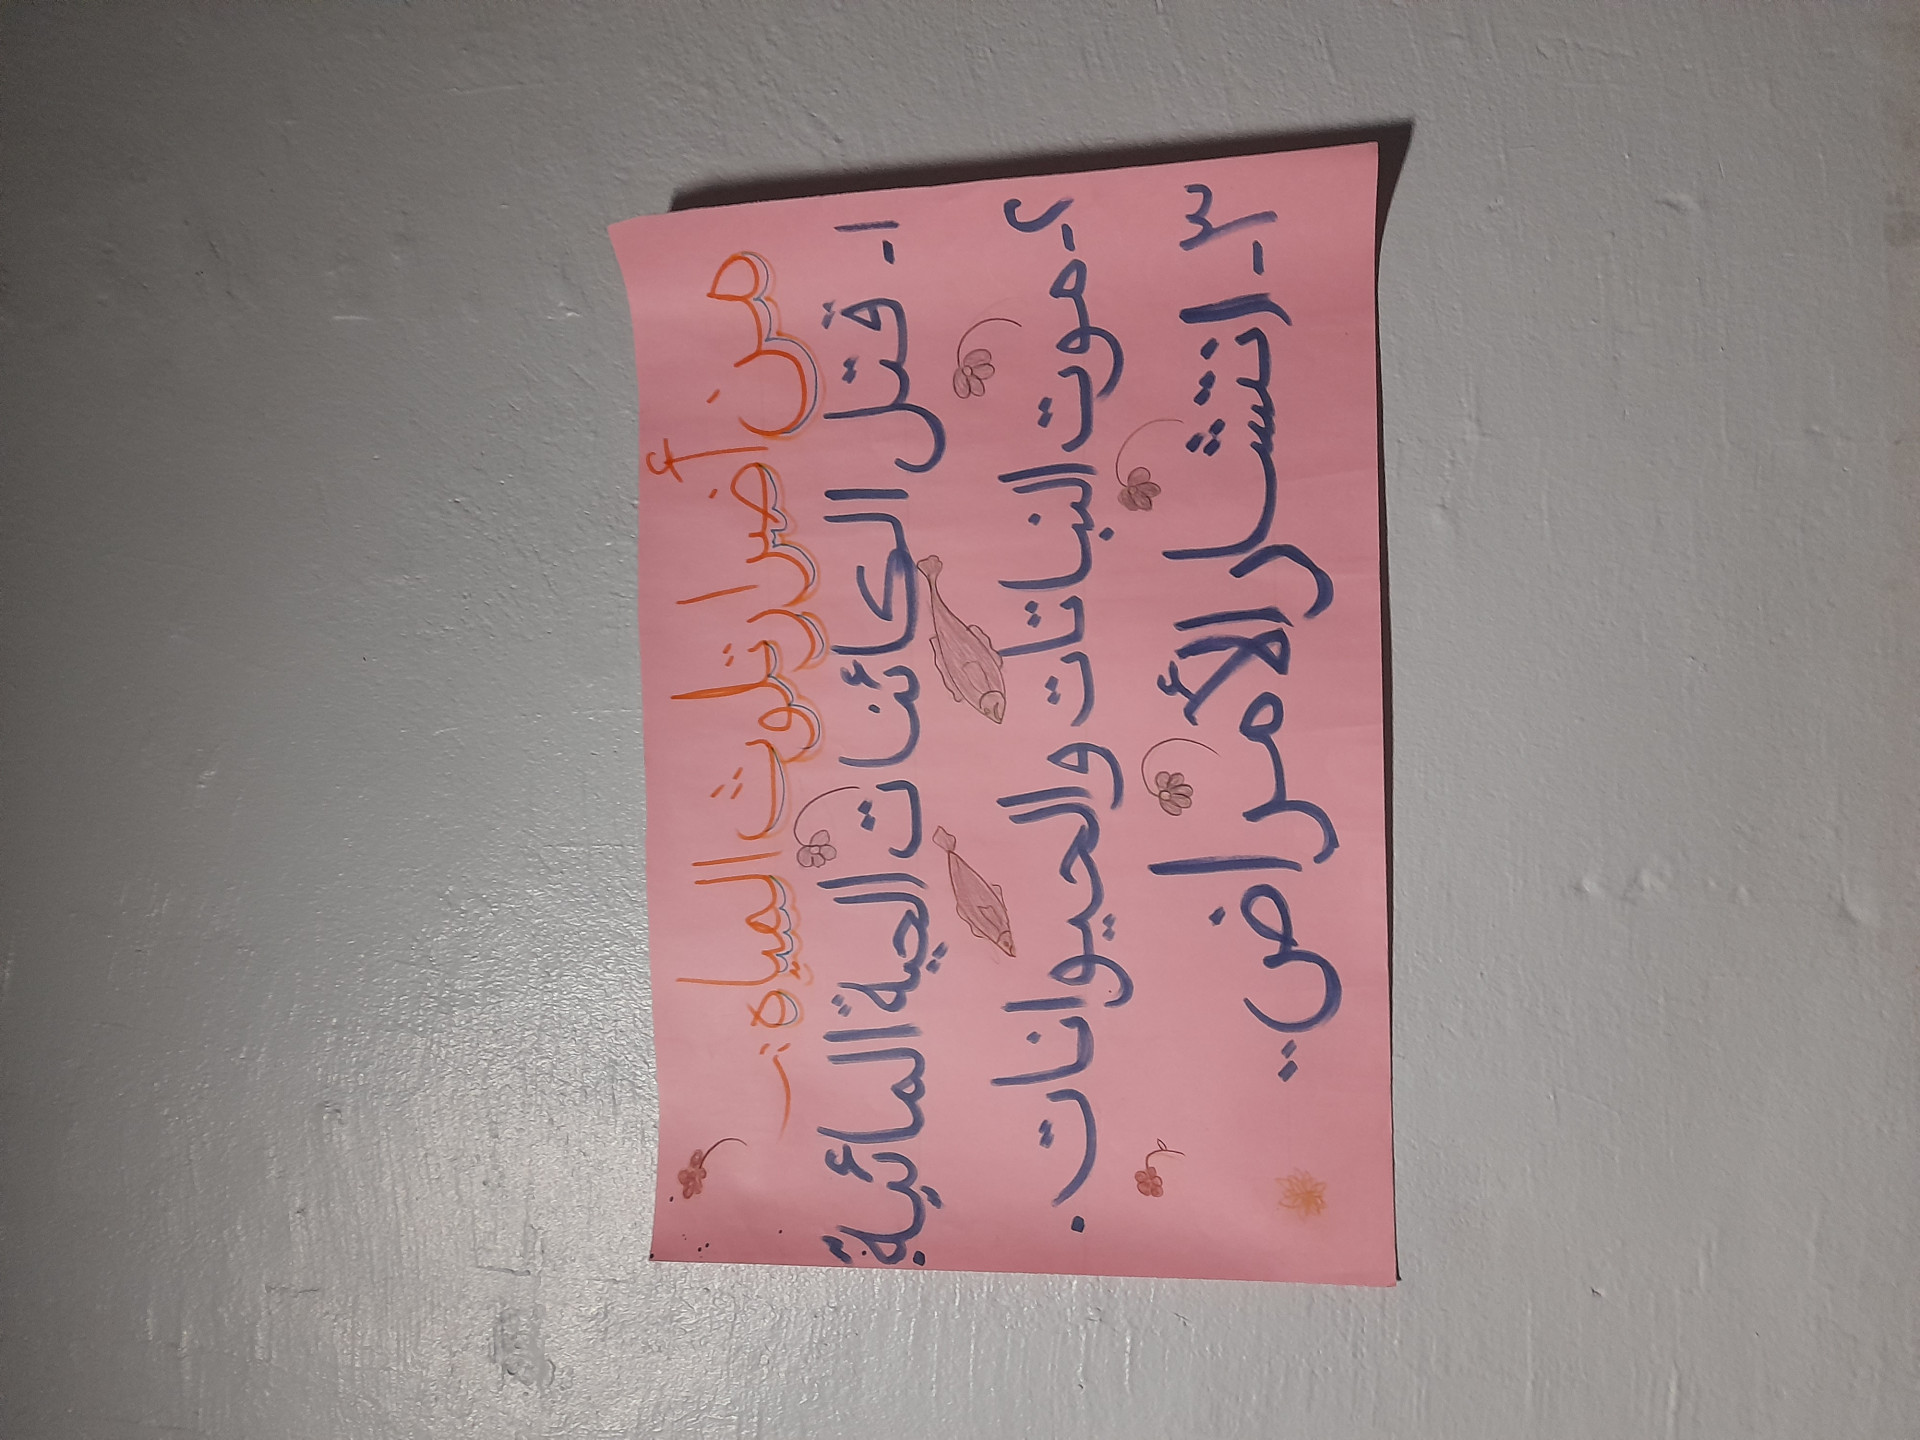 من أضرار تلوث المياه :-
١- قتل الكائنات الحية المائية.
٢- موت النباتات والحيوانات.
٣- انتشار الأمراض..